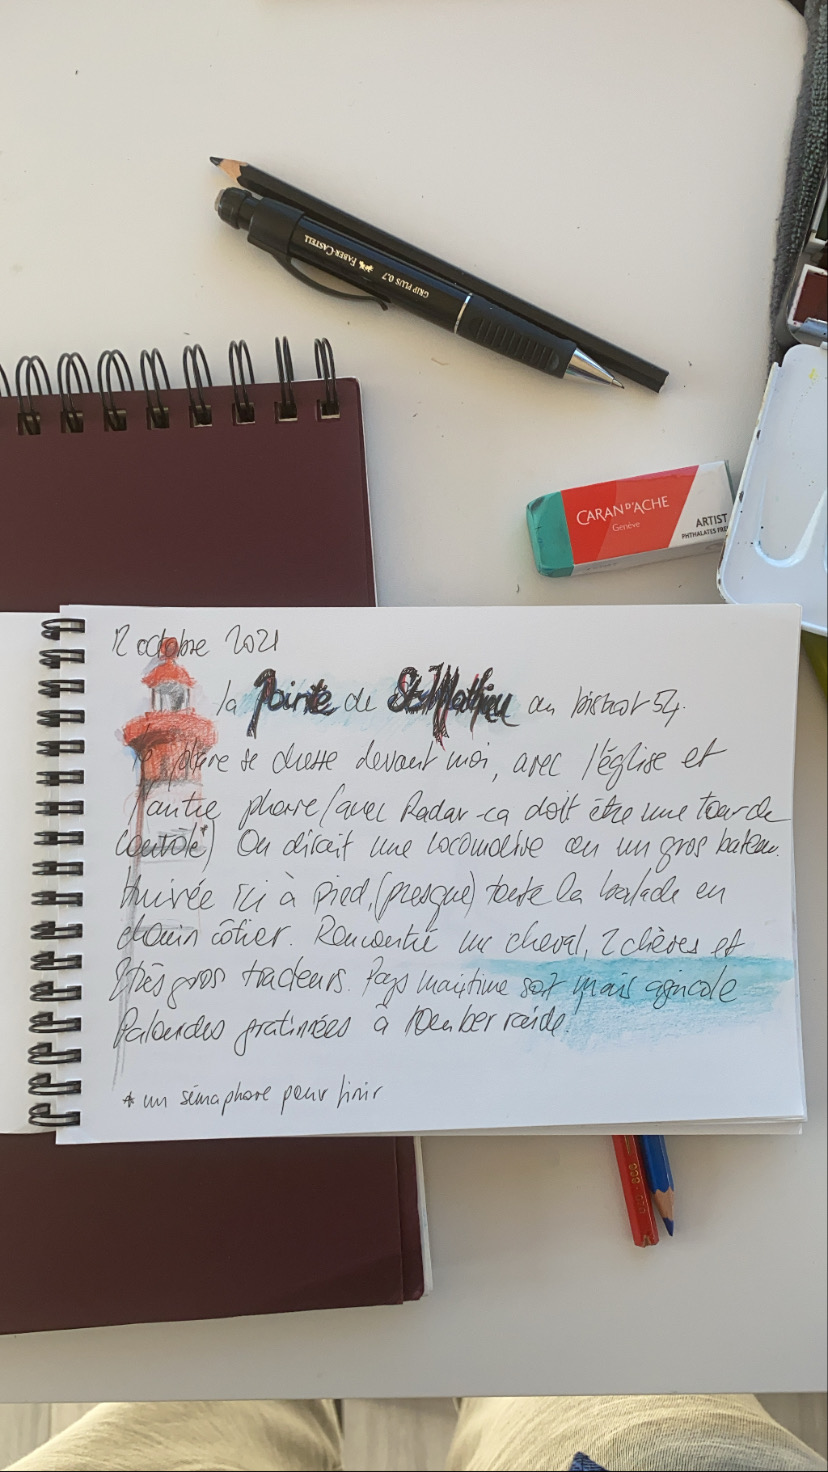 FABER-CASTELL
GRIP PLUS 0.7
CARAN D'ACHE
Genève
ARTIST
PHTHALATES FRE
12 octobre 2021
la Pointe de St Mathieu au bistrot 54.
phare se dresse devant moi, avec l'église et
l'autre phare (avec Radar - ça doit être une tour de
contrôle*) On dirait une locomotive ou un gros bateau.
Arrivée ici à pied, (presque) toute la balade en
chemin côtier. Rencontré un cheval, 2 chèvres et
2 très gros tracteurs. Pays maritime soit mais agricole
Palourdes gratinées à
* un sémaphore pour finir